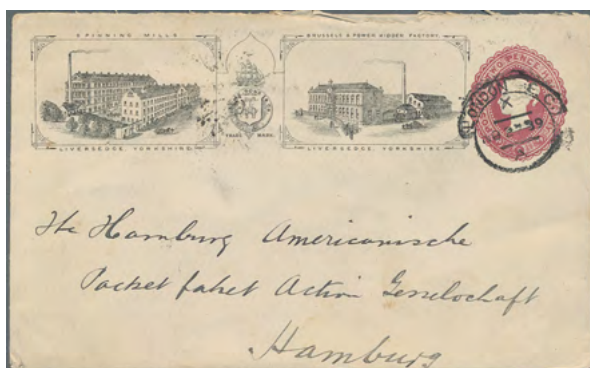 SPINNING MILLS
LIVERSEDGE, YORKSHIRE.
TRADE MARK
BRUSSELS & POWER FACTORY.
LIVERSEDGE, YORKSHIRE.
TWO PENCE
LONDON E.C.
X
The Hamburg Americanische
Packet fahrt Action Gesselschaft
Hamburg